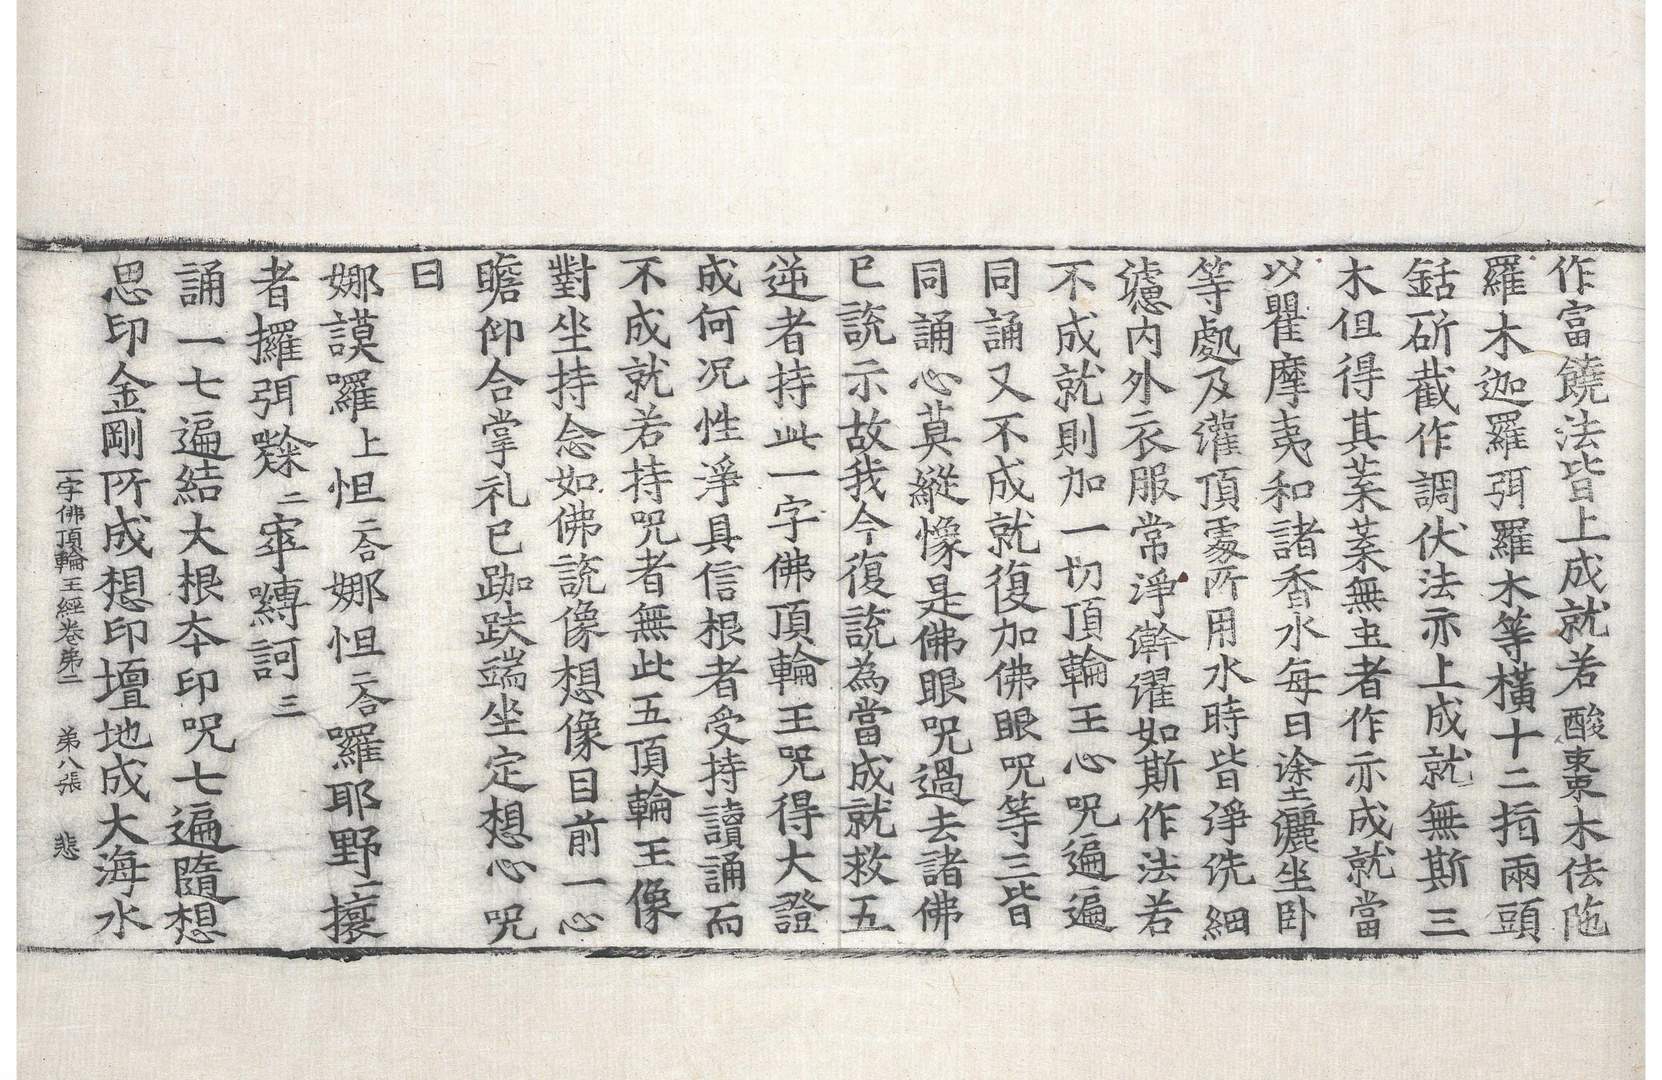 作富饒法皆上成就若酸棗棗木佉陁
羅木迦羅弭羅木等橫十二指兩頭
銛斫截作調伏法亦上成就無斯三
木但得其葉葉無主者作亦成就當
以瞿摩夷和諸香水每日塗灑坐卧
等處及灌頂處所用水時皆淨洗細
濾內外衣服常淨澣濯如斯作法若
不成就則加一切頂輪王心呪遍遍
同誦又不成就復加佛眼呪等三皆
同誦心莫縱㦬是佛眼呪過去諸佛
已說示故我今復說為當成就救五
逆者持此一字佛頂輪王呪得大證
成何況性淨具信根者受持讀誦而
不成就若持呪者無此五頂輪王像
對坐持念如佛說像想像目前一心
瞻仰合掌礼已跏趺端坐定想心呪
曰
娜謨囉上怛二合娜怛二合囉耶野一攘
者攞弭㘑二窣嚩訶三
誦一七遍結大根本印呪七遍隨想
思印金剛所成想印壇地成大海水
一字佛頂輪王經卷第二 第八張 悲